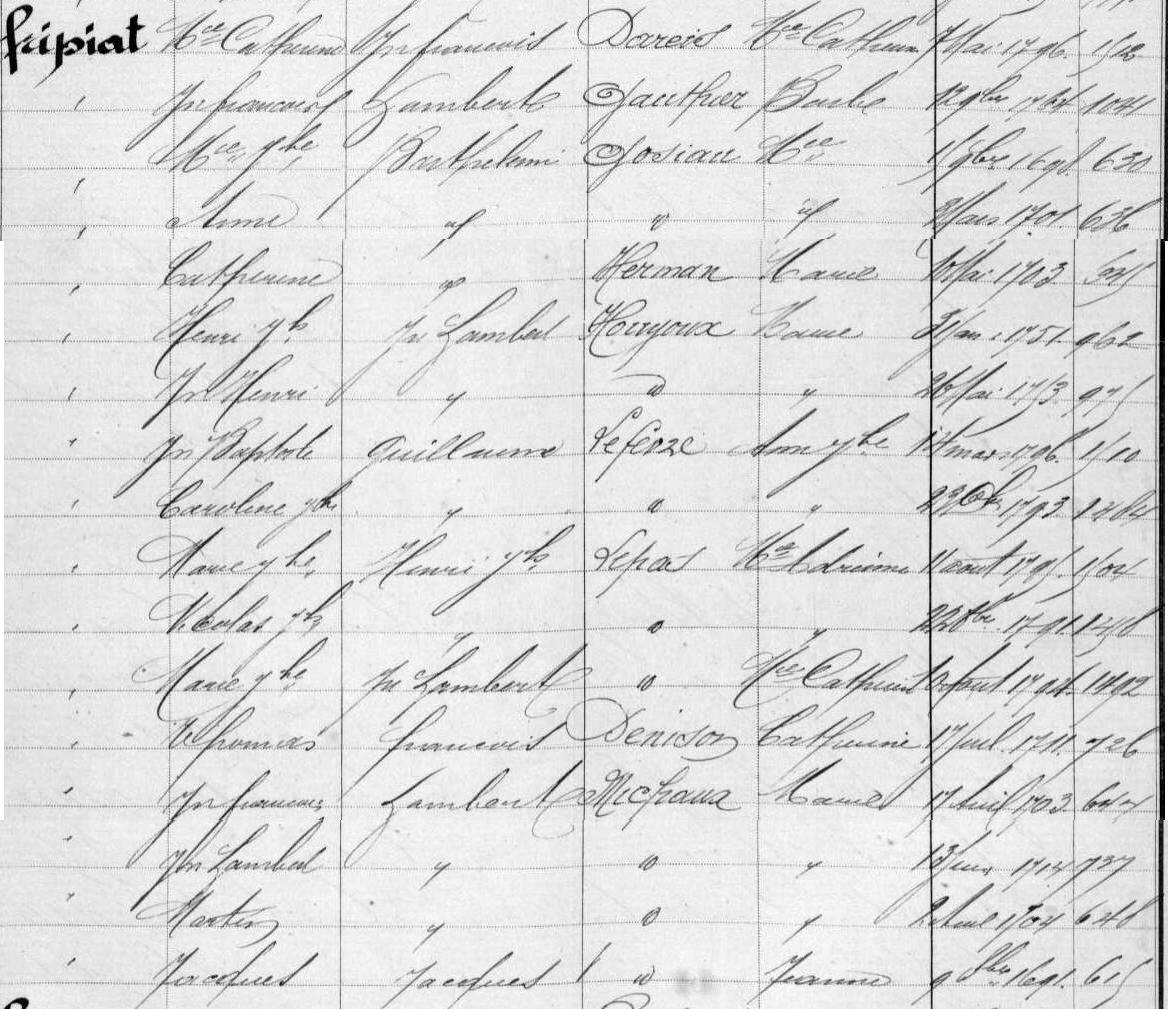 fripiat Mce Catherine Jn francois Dareis Mce Catherine 7 Mai 1796. 1512
" Jn francois Lambert Gauthier Barbe 12 9bre 1764 1041
" Mce Jhe Barthelemi Gosiau Mce 15 9bre 1698. 630
" Anne id " id 2 Mars 1701. 636
" Catherine id Herman Marie 10 Mai 1703.
" Henri Jh Jn Lambert Houyoux Marie 31 Jan. 1751. 962
" Jn Henri " " " 26 Mai 1753. 975
" Jn Baptiste Guillaume Anne Jhe mars 1796. 1510
" Caroline Jhe " " " 1793. 1484
" Marie Jhe Henri Jh Lepas Mce Adrienne 11 aout 1795. 1504
" Nicolas Jh " " " 22 1791.
" Marie Jhe Jn Lambert " Mce Catherine 10 aout 1794. 1492
" Thomas francois Denison Catherine 17 Juil. 1711. 726
" Jn francois Lambert Michaux Marie 17 Avril 1703. 644
" Jn Lambert " " " 13 1712. 737
" Martin " " " 2 1704 648
" Jacques Jacques " Jeanne 9 1691. 615